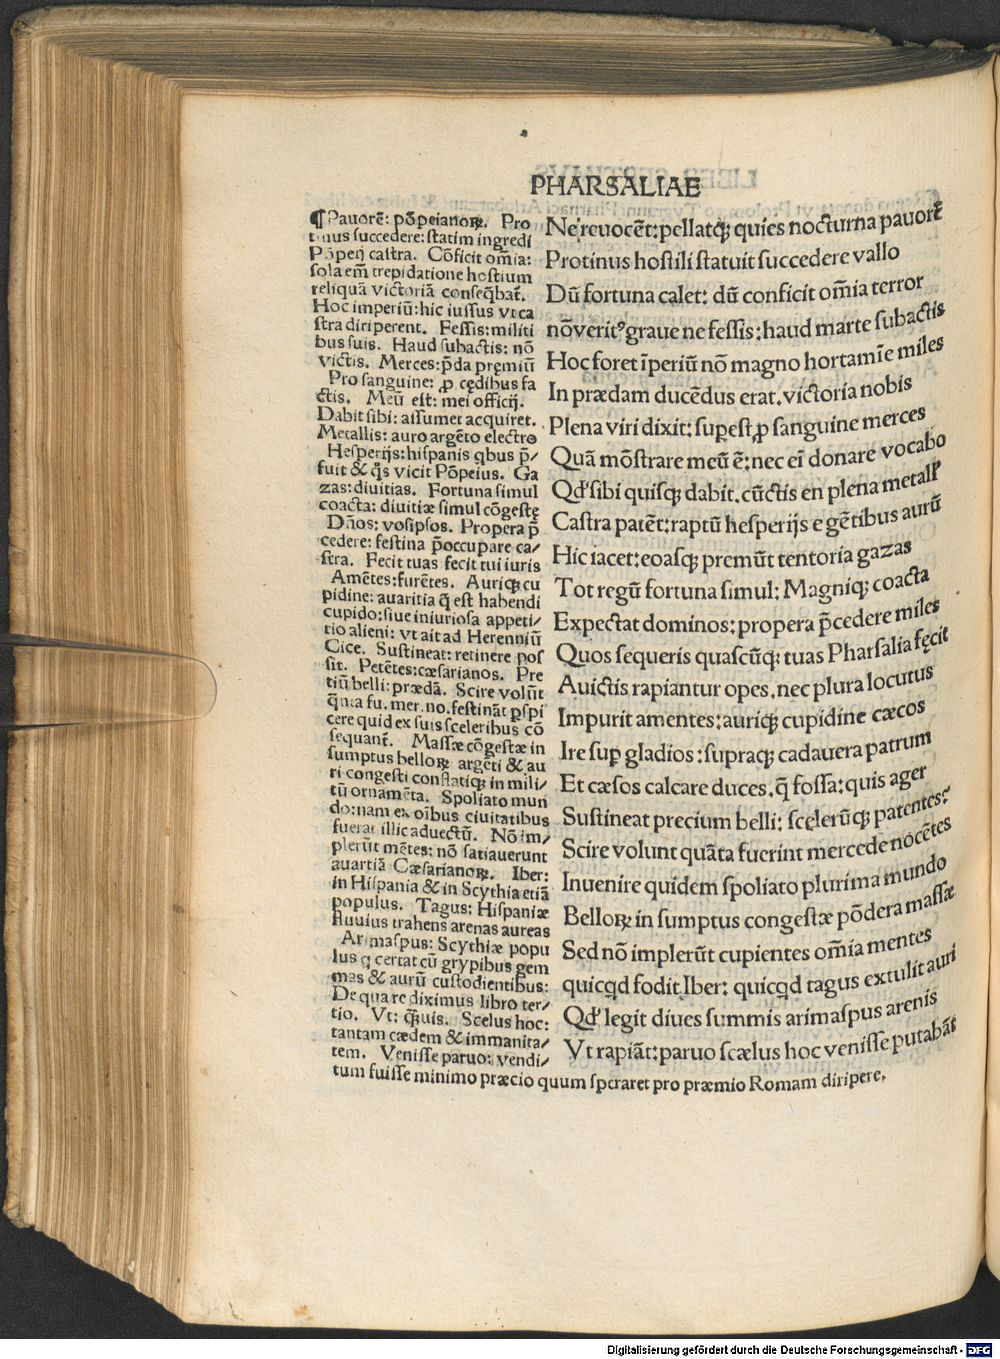 PHARSALIAE
¶ Pauorē: pōpeianoꝝ. Pro
tinus succedere: statim ingredi
Pōpeij castra. Cōficit om̄ia:
sola em̄ trepidatione hostium
reliquā victoriā conseq̄bat᷑.
Hoc imperiū: hic iussus vt ca
stra diriperent. Fessis: militi
bus suis. Haud subactis: nō
victis. Merces: p̄da pręmiū
Pro sanguine: ꝓ cędibus fa
ctis. Meū est: mei officij.
Dabit sibi: assumet acquiret.
Metallis: auro argēto electro
Hesperijs: hispanis qbus p̄/
fuit & q̄s vicit Pōpeius. Ga
zas: diuitias. Fortuna simul
coacta: diuitiæ simul cōgestę
Dn̄os: vosipsos. Propera p̄
cedere: festina p̄occupare ca/
stra. Fecit tuas fecit tui iuris
Amētes: furētes. Auriqꝫ cu
pidine: auaritia q̄ est habendi
cupido: siue iniuriosa appeti/
tio alieni: vt ait ad Herenniū
Cice. Sustineat: retinere pos
sit. Petētes: cæsarianos. Pre
tiū belli: prædā. Scire volūt
q̄nta fu. mer. no. festināt ꝑspi
cere quid ex suis sceleribus cō
sequant᷑. Massæ cōgestæ in
sumptus belloꝝ argēti & au
ri congesti constatiqꝫ in mili/
tū ornamēta. Spoliato mun
do: nam ex oībus ciuitatibus
fuerat illic aduectū. Nō im/
plerūt mētes: nō satiauerunt
auartiā Cæsarianoꝝ. Iber:
in Hispania & in Scythia etiā
populus. Tagus: Hispaniæ
fluuius trahens arenas aureas
Arimaspus: Scythiæ popu
lus q certat cū grypibus gem
mas & aurū custodientibus:
De qua re diximus libro ter/
tio. Vt: q̄uis. Scelus hoc:
tantam cædem & immanita/
tem. Venisse paruo: vendi/
tum fuisse minimo præcio quum speraret pro præmio Romam diripere.
Ne reuocēt: pellatqꝫ quies nocturna pauorē
Protinus hostili statuit succedere vallo
Dū fortuna calet: dū conficit om̄ia terror
nō verit⁹ graue ne fessis: haud marte subactis
Hoc foret īperiū nō magno hortamīe miles
In prædam ducēdus erat. victoria nobis
Plena viri dixit: supest ꝓ sanguine merces
Quā mōstrare meū ē: nec eī donare vocabo
Qd' sibi quisqꝫ dabit. cūctis en plena metall'
Castra patēt: raptū hesperijs e gētibus aurū
Hic iacet: eoasqꝫ premūt tentoria gazas
Tot regū fortuna simul: Magniqꝫ coacta
Expectat dominos: propera p̄cedere miles
Quos sequeris quascūqꝫ tuas Pharsalia fęcit
A victis rapiantur opes. nec plura locutus
Impurit amentes: auriqꝫ cupidine cæcos
Ire sup gladios: supraqꝫ cadauera patrum
Et cæsos calcare duces. q̄ fossa: quis ager
Sustineat precium belli: scelerūqꝫ patentes:
Scire volunt quāta fuerint mercede nocētes
Inuenire quidem spoliato plurima mundo
Belloꝝ in sumptus congestæ pōdera massæ
Sed nō implerūt cupientes om̄ia mentes
quicqd fodit Iber: quicqd tagus extulit auri
Qd' legit diues summis arimaspus arenis
Vt rapiāt: paruo scælus hoc venisse putabāt
Digitalisierung gefördert durch die Deutsche Forschungsgemeinschaft - DFG